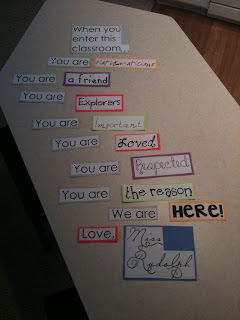 When you
enter this
classroom...
You are mathematicians
You are a friend
You are Explorers
You are Important
You are Loved
You are Respected
You are the reason
We are HERE!
Love,
Miss
Rudolph